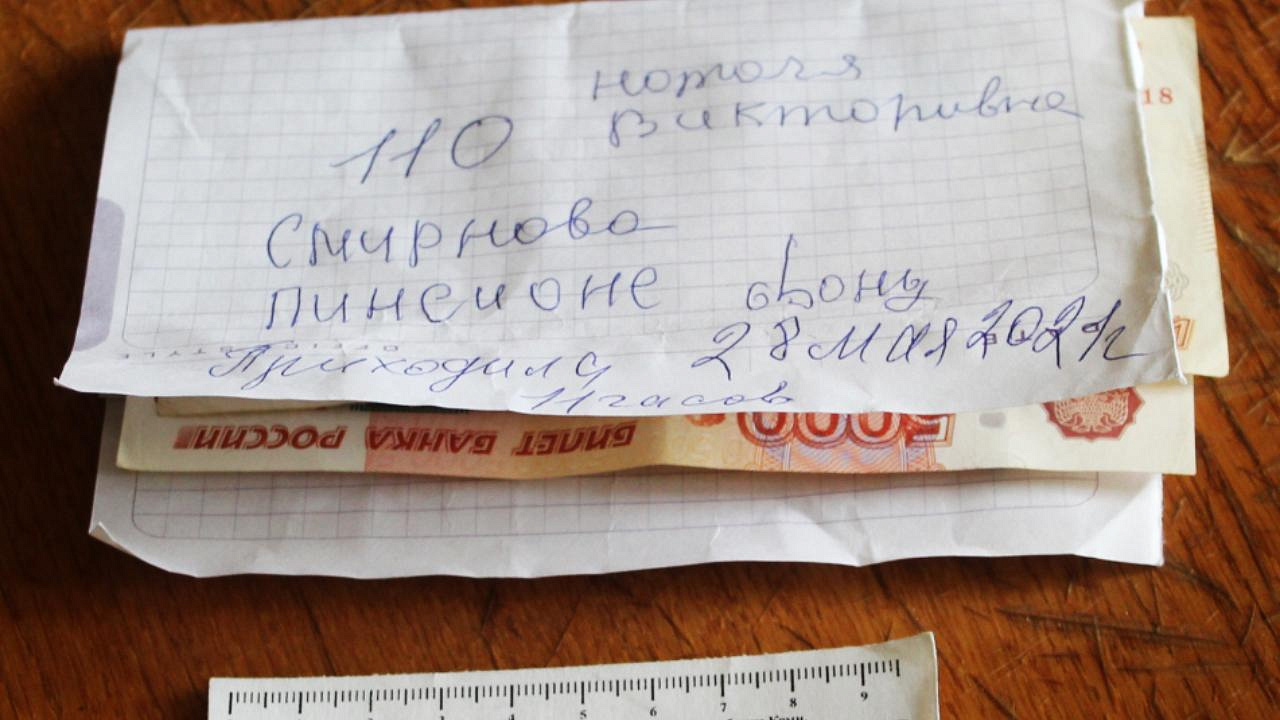 ноталя
Викторивна
110
Смирнова
пинсионе фонд
Приходила 28 мая 2021г
11 часов
18
БИЛЕТ БАНКА РОССИИ
5000
4 5 6 7 8 9